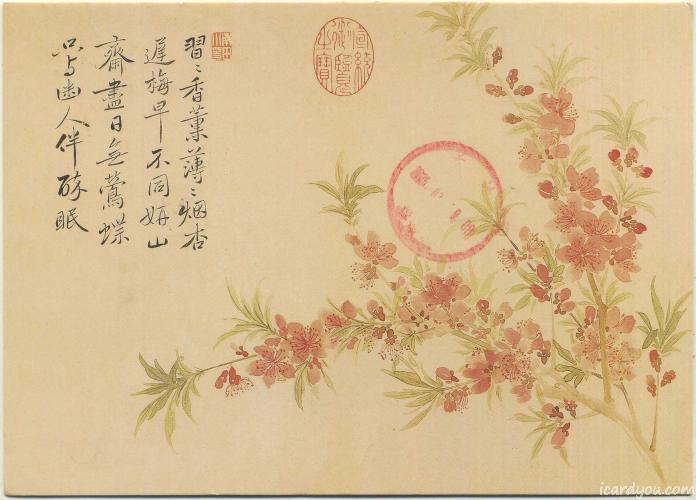 習〻香薰薄〻烟杏
遲梅早不同妍山
齋盡日無鶯蝶
只与幽人伴醉眠
宣統
御覽
之寶
icardyou.com